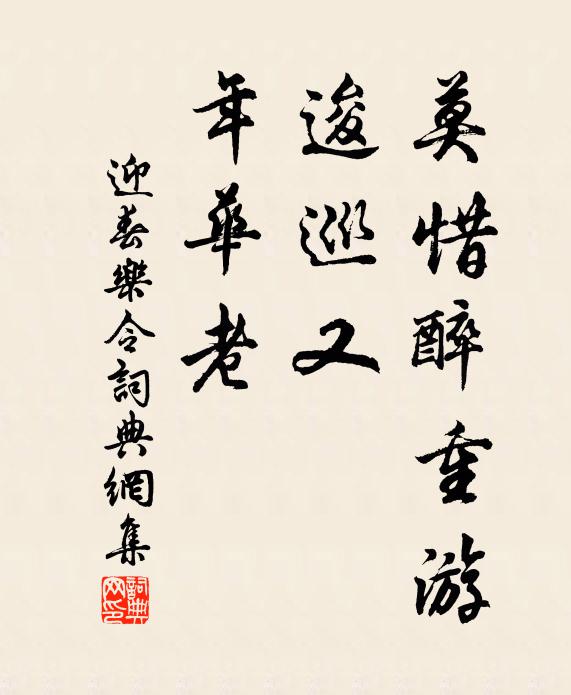 莫惜醉重游
逡巡又
年華老
迎春樂令詞典網集
詞典網印